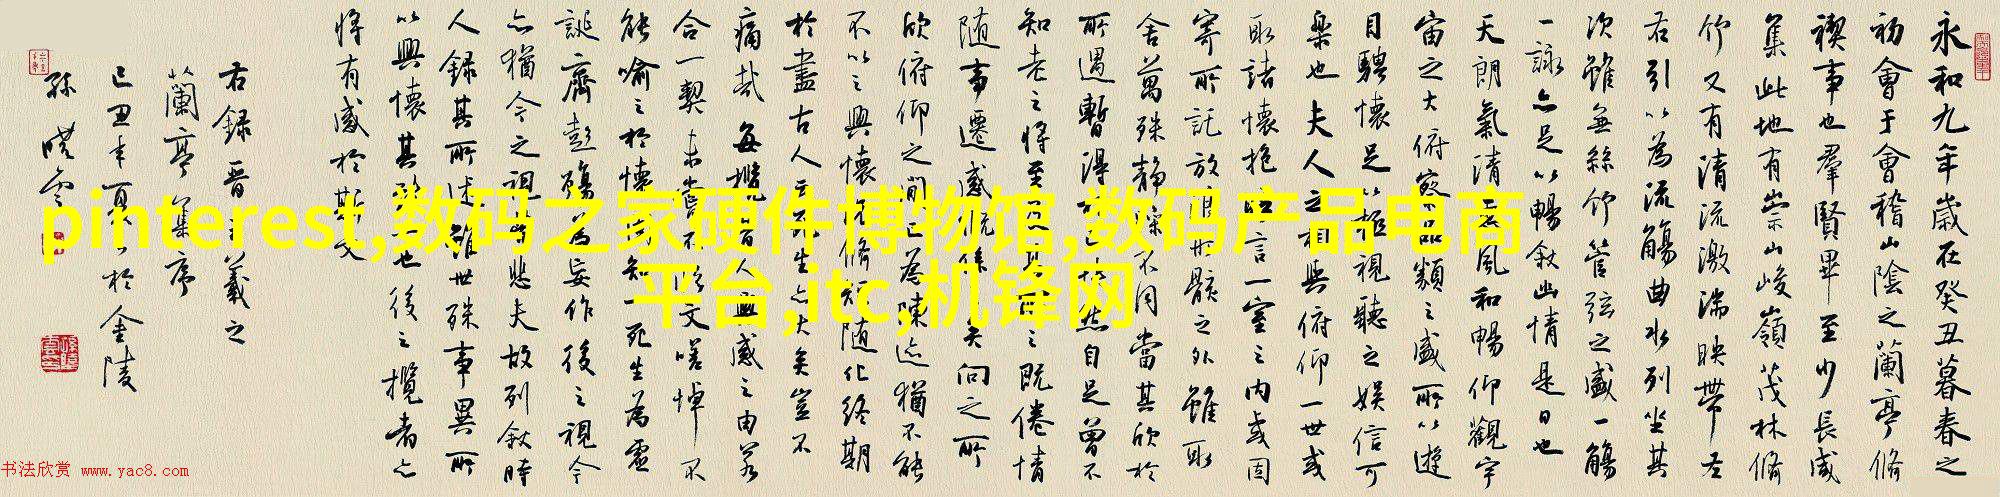 永和九年歲在癸丑暮春之
初會于會稽山陰之蘭亭脩
禊事也羣賢畢至少長咸
集此地有崇山峻嶺茂林脩
竹又有清流激湍映帶左
右引以為流觴曲水列坐其
次雖無絲竹管弦之盛一觴
一詠亦足以暢敘幽情是日也
天朗氣清惠風和暢仰觀宇
宙之大俯察品類之盛所以遊
目騁懷足以極視聽之娛信可
樂也夫人之相與俯仰一世或
取諸懷抱晤言一室之內或因
寄所託放浪形骸之外雖取
舍萬殊靜躁不同當其欣於
所遇暫得於己快然自足曾不
知老之將至及其所之既倦情
随事遷感慨係之矣向之所
欣俯仰之間已為陳迹猶不能
不以之興懷况脩短随化終期
於盡古人云死生亦大矣豈不
痛哉每攬昔人興感之由若
合一契未嘗不臨文嗟悼不
能喻之於懷固知一死生為虛
誕齊彭殤為妄作後之視今
亦猶今之視昔悲夫故列敘時
人錄其所述雖世殊事異所
以興懷其致一也後之攬者亦
將有感於斯文
右錄晉王羲之
蘭亭集序
己丑年夏日於金陵
孫曉雲
pinterest,数码之家硬件博物馆,数码产品电商
平台,itc,机锋网
书法欣赏 www.yac8.com